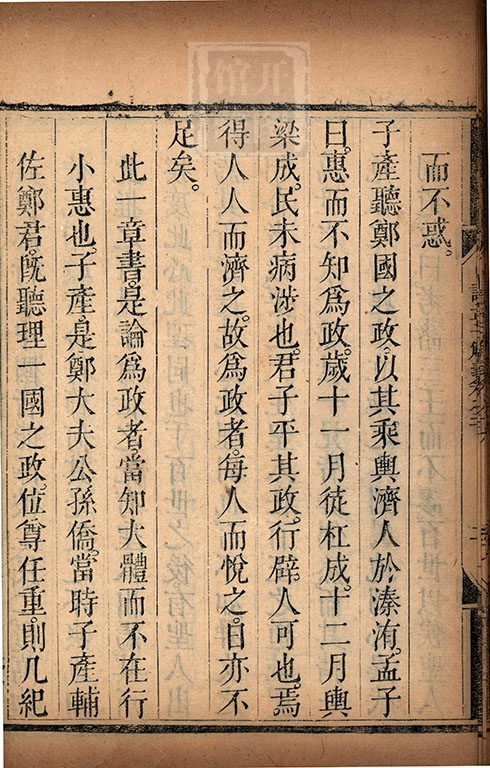 而不惑。
子產聽鄭國之政。以其乘輿濟人於溱洧。孟子
曰。惠而不知爲政。歲十一月徒杠成。十二月輿
梁成。民未病涉也。君子平其政。行辟人可也。焉
得人人而濟之。故爲政者。每人而悅之。日亦不
足矣。
此一章書。是論爲政者。當知大體而不在行
小惠也。子產是鄭大夫公孫僑。當時子產輔
佐鄭君。旣聽理一國之政。位尊任重。則凡紀